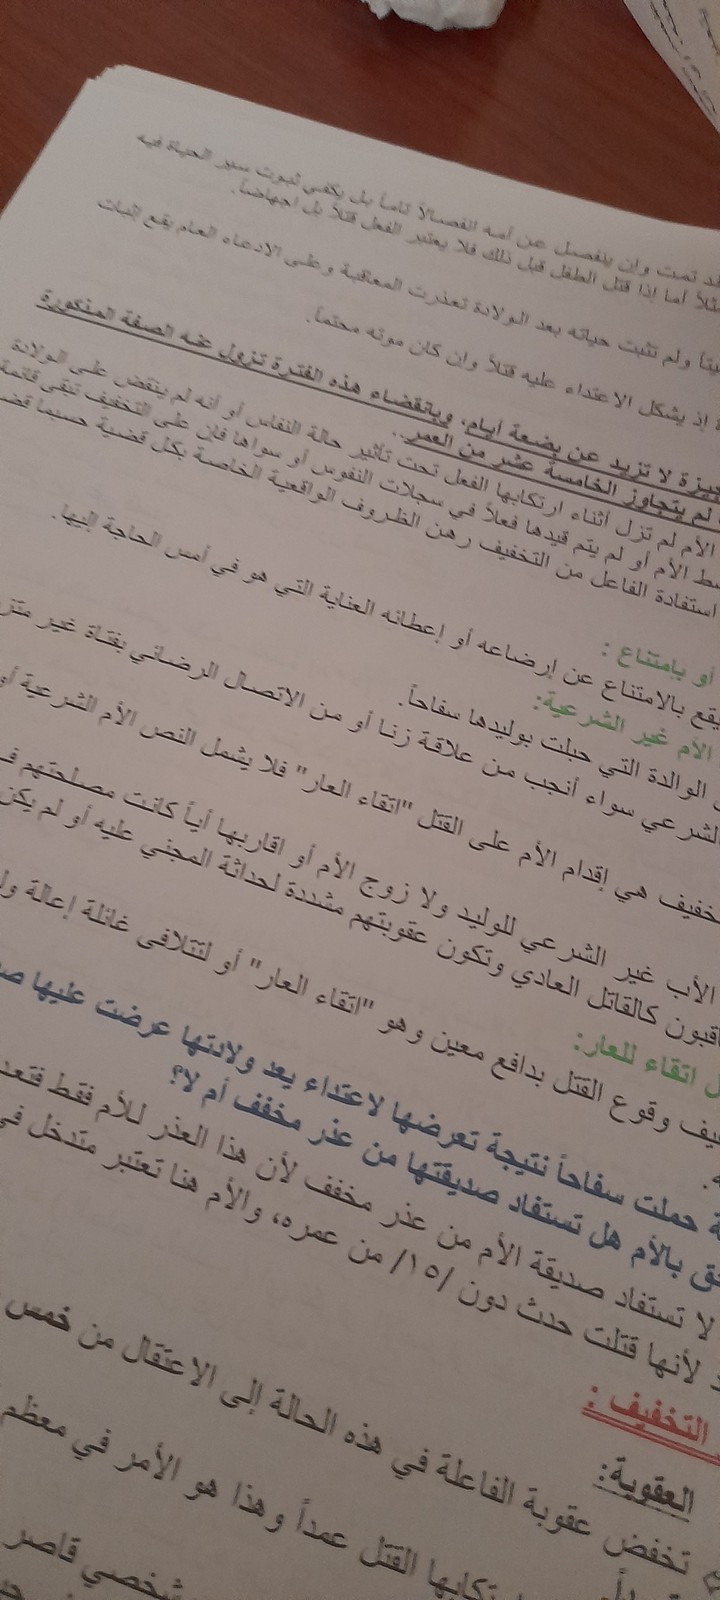 قد تمت وان ينفصل عن امه انفصالاً تاماً بل يكفي ثبوت سير الحياة فيه
مثلاً أما إذا قتل الطفل قبل ذلك فلا يعتبر الفعل قتلاً بل اجهاضاً.
ميتاً ولم تثبت حياته بعد الولادة تعذرت المعاقبة وعلى الادعاء العام يقع إثبات
إذ يشكل الاعتداء عليه قتلاً وإن كان موته محتماً.
وجيزة لا تزيد عن بضعة أيام، وبانقضاء هذه الفترة تزول عنه الصفة المذكورة
لم يتجاوز الخامسة عشر من العمر..
الأم لم تزل أثناء ارتكابها الفعل تحت تأثير حالة النفاس أو أنه لم ينقض على الولادة
الأم أو لم يتم قيدها فعلاً في سجلات النفوس أو سواها فإن على التخفيف تبقى قائمة
استفادة الفاعل من التخفيف رهن الظروف الواقعية الخاصة بكل قضية حسبما
أو بامتناع :
يقع بالامتناع عن إرضاعه أو إعطائه العناية التي هو في أمس الحاجة إليها.
الأم غير الشرعية:
الوالدة التي حبلت بوليدها سفاحاً.
الشرعي سواء أنجب من علاقة زنا أو من الاتصال الرضائي بفتاة غير
التخفيف هي إقدام الأم على القتل "اتقاء العار" فلا يشمل النص الأم الشرعية أو
الأب غير الشرعي للوليد ولا زوج الأم أو اقاربها أياً كانت مصلحتهم
يعاقبون كالقاتل العادي وتكون عقوبتهم مشددة لحداثة المجني عليه أو لم يكن
اتقاء للعار:
وقوع القتل بدافع معين وهو "اتقاء العار" أو لتتلافى غائلة إعالة
حملت سفاحاً نتيجة تعرضها لاعتداء بعد ولادتها عرضت عليها
بالأم هل تستفاد صديقتها من عذر مخفف أم لا؟
لا تستفاد صديقة الأم من عذر مخفف لأن هذا العذر للأم فقط فتعد
لأنها قتلت حدث دون /١٥/ من عمره، والأم هنا تعتبر متدخل في
التخفيف :
العقوبة:
تخفض عقوبة الفاعلة في هذه الحالة إلى الاعتقال من خمس
القتل عمداً وهذا هو الأمر في معظم
شخصي قاصر